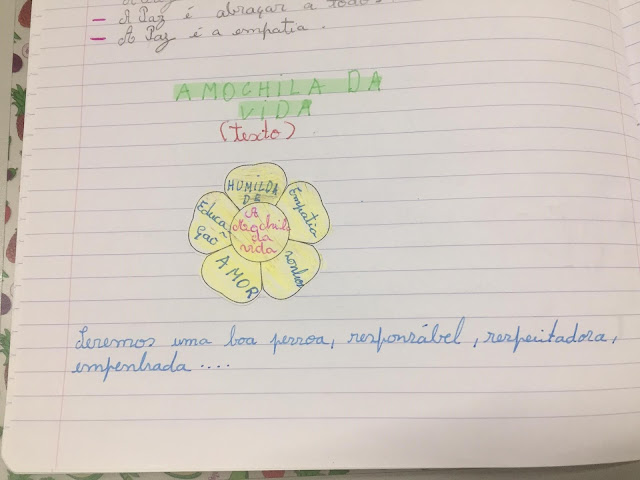 - A Paz é abraçar a todos
- A Paz é a empatia.
A MOCHILA DA
VIDA
(texto)
HUMILDA
DE
Empatia
sonhos
AMOR
Educa
ção
A
Mochila
da
vida
Seremos uma boa pessoa, responsável, respeitadora,
empenhada ....